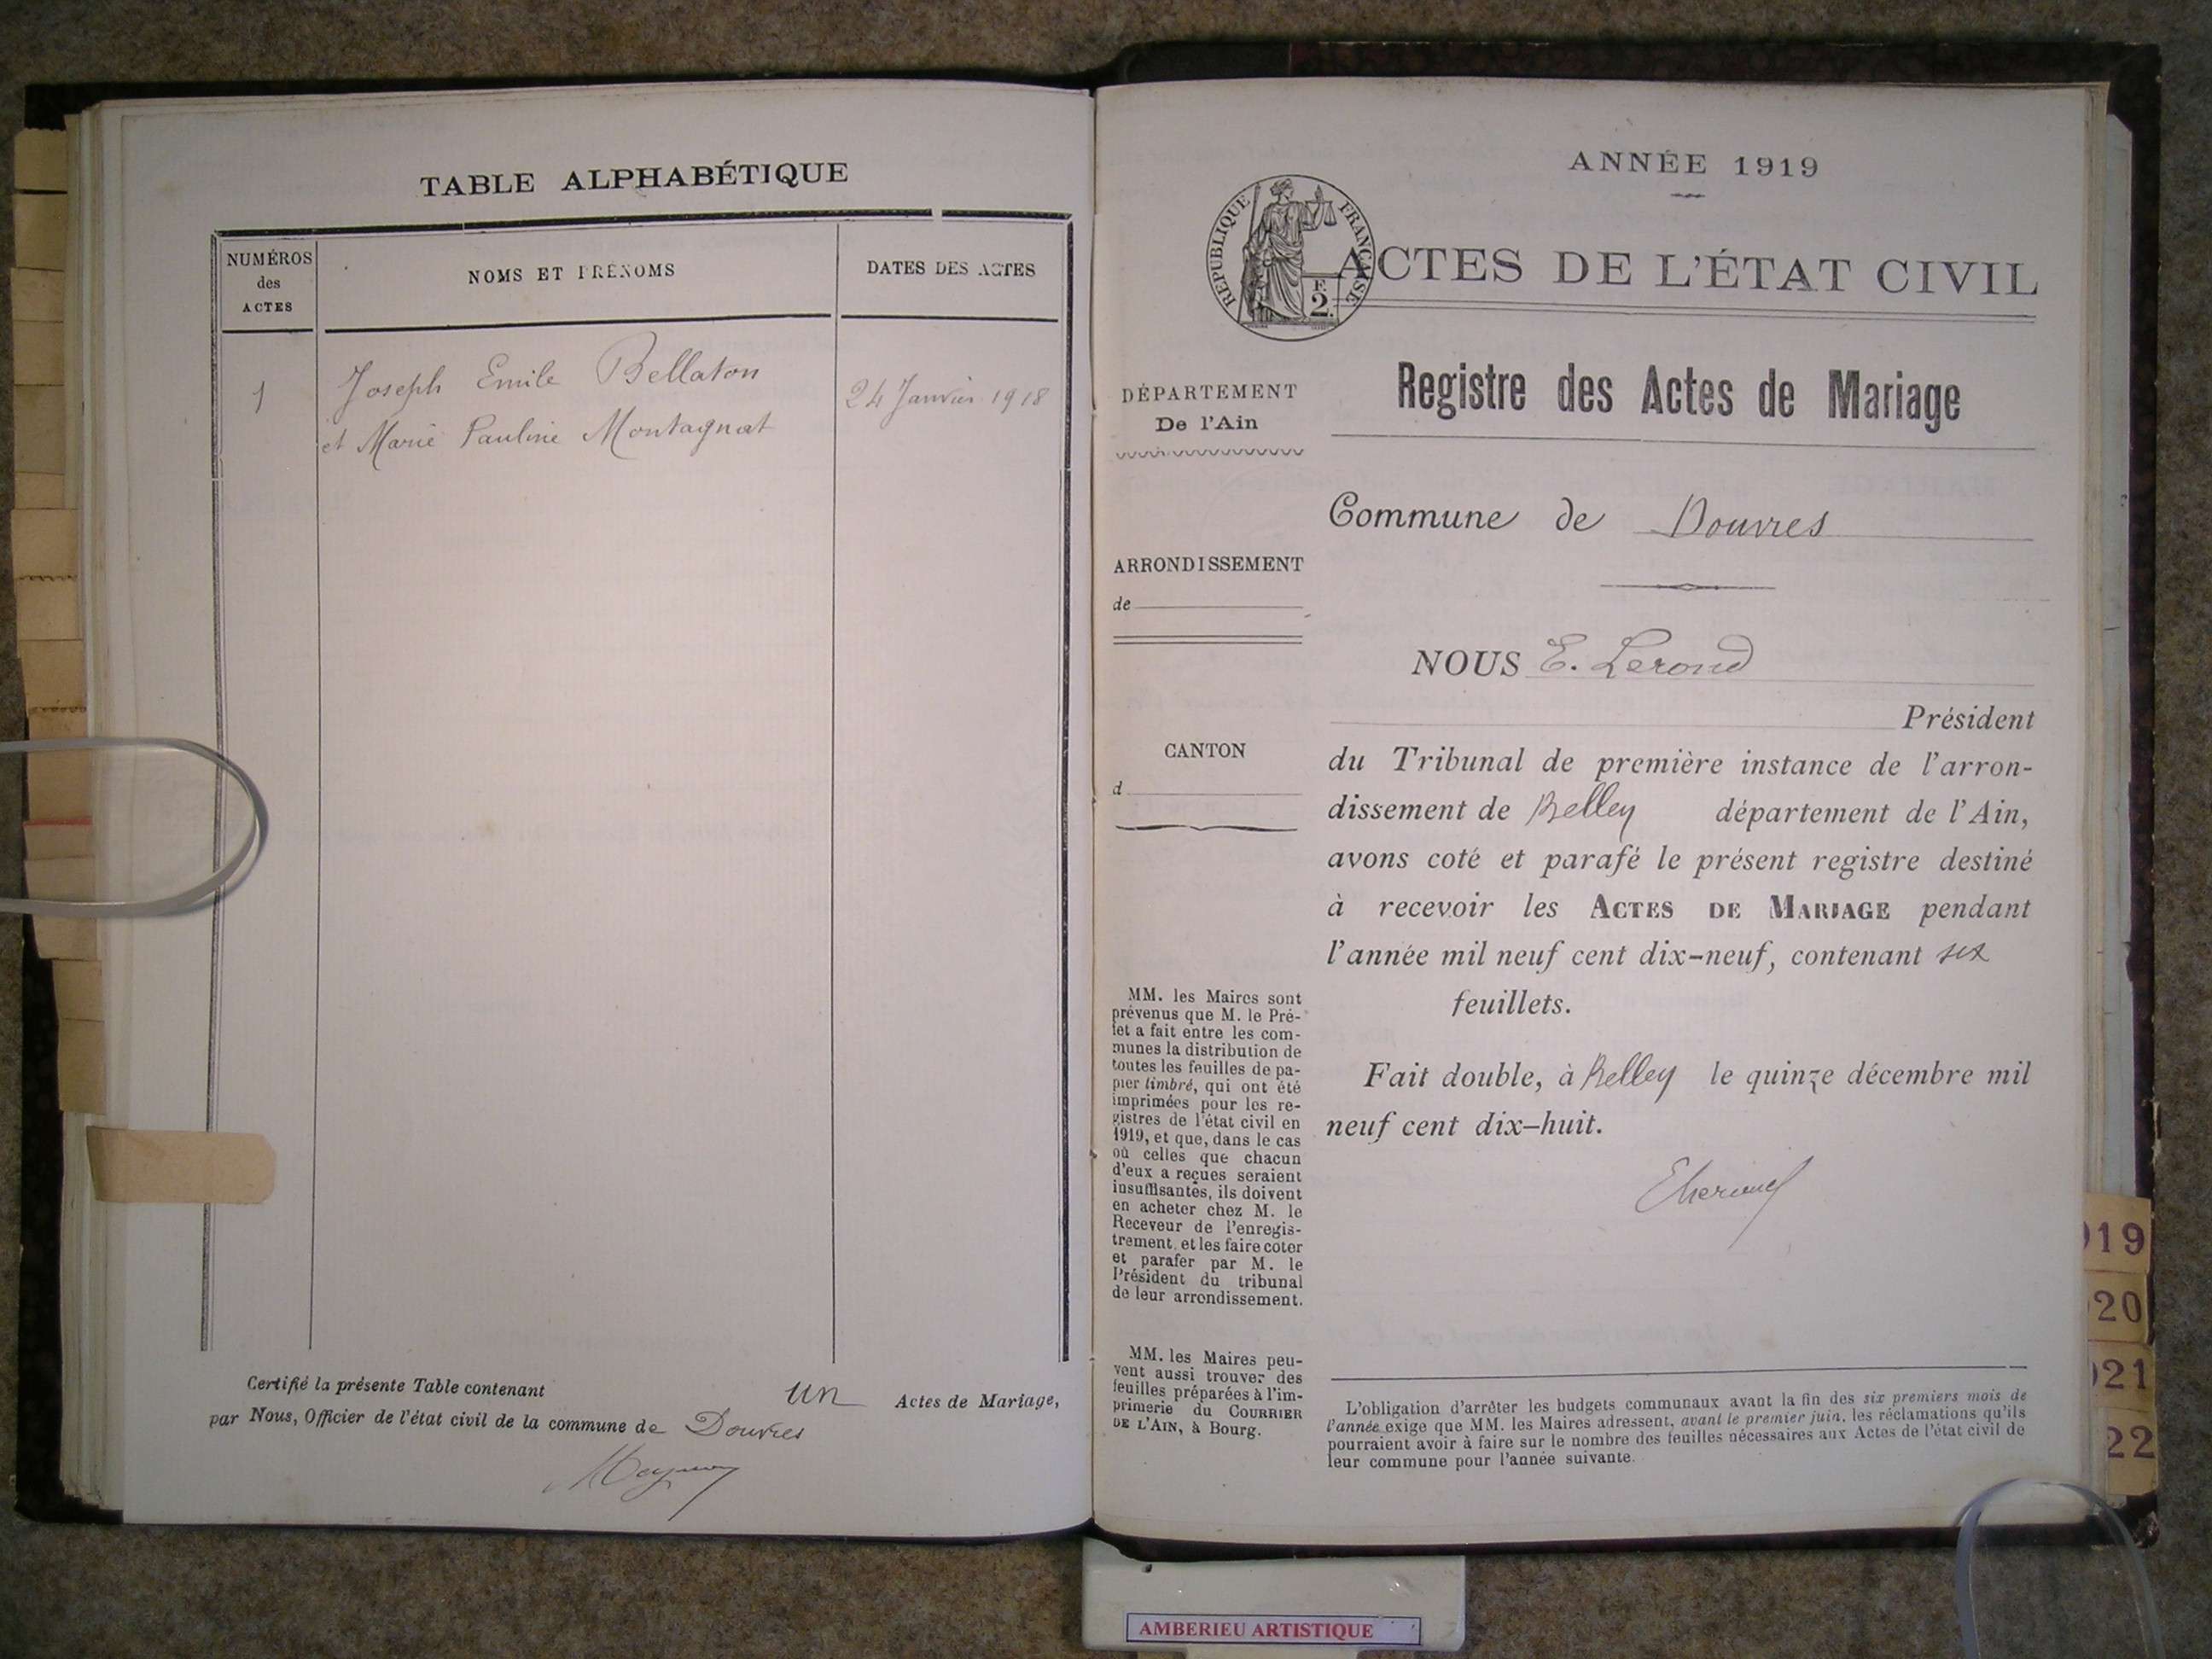 TABLE ALPHABÉTIQUE
NUMÉROS
des
ACTES
NOMS ET PRÉNOMS
DATES DES ACTES
1
Joseph Emile Bellaton
et Marie Pauline Montagnat
24 Janvier 1918
Certifié la présente Table contenant un Actes de Mariage,
par Nous, Officier de l'état civil de la commune de Douvres
ANNÉE 1919
RÉPUBLIQUE FRANÇAISE
F.
2.
ACTES DE L'ÉTAT CIVIL
DÉPARTEMENT
De l'Ain
ARRONDISSEMENT
de
CANTON
d
MM. les Maires sont
prévenus que M. le Pré-
fet a fait entre les com-
munes la distribution de
toutes les feuilles de pa-
pier timbré, qui ont été
imprimées pour les re-
gistres de l'état civil en
1919, et que, dans le cas
où celles que chacun
d'eux a reçues seraient
insuffisantes, ils doivent
en acheter chez M. le
Receveur de l'enregis-
trement, et les faire coter
et parafer par M. le
Président du tribunal
de leur arrondissement.
MM. les Maires peu-
vent aussi trouver des
feuilles préparées à l'im-
primerie du COURRIER
DE L'AIN, à Bourg.
Registre des Actes de Mariage
Commune de Douvres
NOUS E. Lerond
Président
du Tribunal de première instance de l'arron-
dissement de Belley département de l'Ain,
avons coté et parafé le présent registre destiné
à recevoir les ACTES DE MARIAGE pendant
l'année mil neuf cent dix-neuf, contenant six
feuillets.
Fait double, à Belley le quinze décembre mil
neuf cent dix-huit.
L'obligation d'arrêter les budgets communaux avant la fin des six premiers mois de
l'année exige que MM. les Maires adressent, avant le premier juin, les réclamations qu'ils
pourraient avoir à faire sur le nombre des feuilles nécessaires aux Actes de l'état civil de
leur commune pour l'année suivante.
19
20
21
22
AMBERIEU ARTISTIQUE